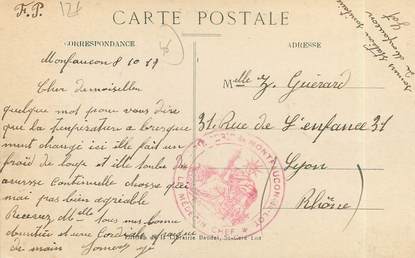 F. P.
CARTE POSTALE
CORRESPONDANCE
ADRESSE
Monfaucon 8 10 19
Cher demoiselle
quelque mot pour vous dire
que la température a brusque
ment changé ici elle fait un
froid de loups et elle tombe des
averse continuelle chosse
mai pas bien agréable
Recevez Melle tous mes bonne
et une Cordiale poigne
de main
Melle Z. Guérard
31 Rue de L'enfance 31
Lyon
Rhône
LE MÉDECIN CHEF
Librairie Baudel, St-Céré Lot